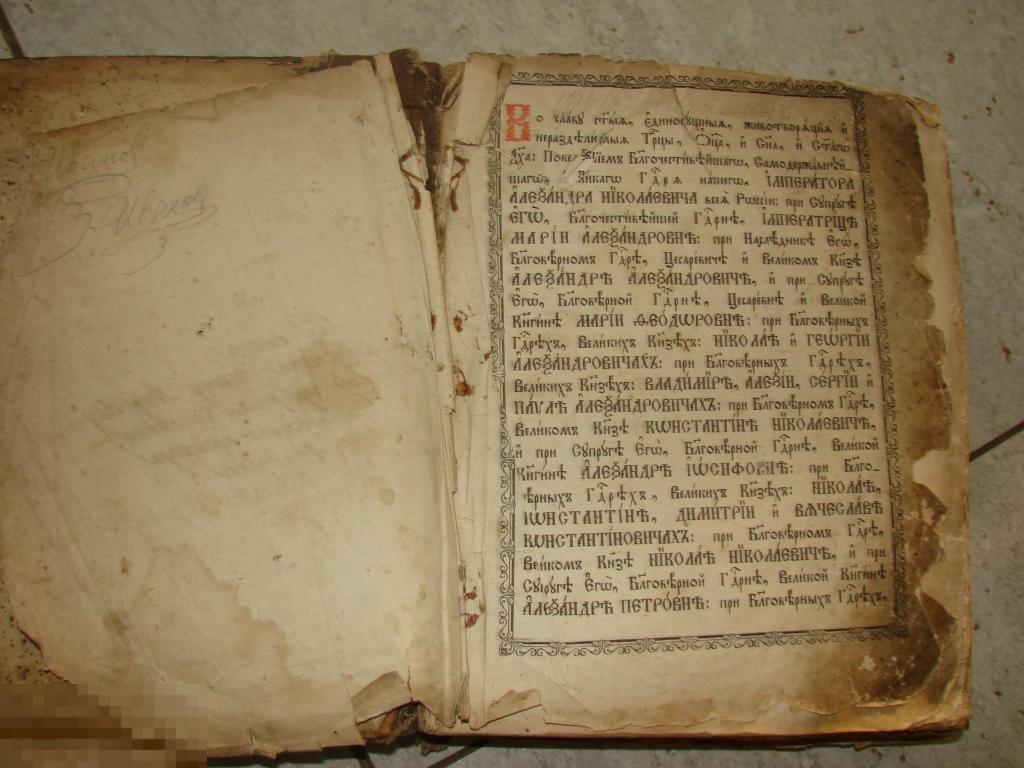 Иванов
Во славу ст҃ыѧ, є҆диносꙋщныѧ, животворѧщїѧ и҆
нераздѣлимыѧ Трⷪ҇цы, Ѻ҆ц҃а, и҆ Сн҃а, и҆ Ст҃агѡ
Дх҃а: Повелѣнїемъ Бл҃гочестивѣйшагѡ, Самодержавнѣй-
шагѡ, Великагѡ Гдⷭ҇рѧ нашегѡ, І҆МПЕРАТОРА
А҆ЛЕѮА́НДРА НЇКОЛА́ЕВИЧА всеѧ Рѡссїи: при Сꙋпрꙋгѣ
Є҆ГѠ̀, Бл҃гочестивѣйшей Гдⷭ҇рнѣ, І҆МПЕРАТРИЦѢ
МАРІИ А҆ЛЕѮА́НДРОВНѢ: при Наслѣдникѣ Є҆гѡ̀,
Бл҃говѣрномъ Гдⷭ҇рѣ, Цесаревичѣ и҆ Великомъ Кнѧзѣ
А҆ЛЕѮА́НДРѢ А҆ЛЕѮА́НДРОВИЧѢ, и҆ при Сꙋпрꙋгѣ
Є҆гѡ̀, Бл҃говѣрной Гдⷭ҇рнѣ, Цесаревнѣ и҆ Великой
Кнѧгинѣ МАРІИ ѲЕОДѠРОВНѢ: при Бл҃говѣрныхъ
Гдⷭ҇рѣхъ, Великихъ Кнѧзѣхъ: НЇКОЛА́Ѣ и҆ ГЕѠРГІИ
А҆ЛЕѮА́НДРОВИЧАХЪ: при Бл҃говѣрныхъ Гдⷭ҇рѣхъ,
Великихъ Кнѧзѣхъ: ВЛАДИ́МІРѢ, А҆ЛЕѮІИ, СЕРГІИ и҆
ПАѴЛѢ А҆ЛЕѮА́НДРОВИЧАХЪ: при Бл҃говѣрномъ Гдⷭ҇рѣ,
Великомъ Кнѧзѣ КѠНСТАНТІНѢ НЇКОЛА́ЕВИЧѢ,
и҆ при Сꙋпрꙋгѣ Є҆гѡ̀, Бл҃говѣрной Гдⷭ҇рнѣ, Великой
Кнѧгинѣ А҆ЛЕѮА́НДРѢ І҆ѠСИФОВНѢ: при Бл҃го-
вѣрныхъ Гдⷭ҇рѣхъ, Великихъ Кнѧзѣхъ: НЇКОЛА́Ѣ,
КѠНСТАНТІ́НѢ, ДИМИ́ТРІИ и҆ ВѦЧЕСЛА́ВѢ
КѠНСТАНТІ́НОВИЧАХЪ: при Бл҃говѣрномъ Гдⷭ҇рѣ,
Великомъ Кнѧзѣ НЇКОЛА́Ѣ НЇКОЛА́ЕВИЧѢ, и҆ при
Сꙋпрꙋгѣ Є҆гѡ̀, Бл҃говѣрной Гдⷭ҇рнѣ, Великой Кнѧгинѣ
А҆ЛЕѮА́НДРѢ ПЕТРО́ВНѢ: при Бл҃говѣрныхъ Гдⷭ҇рѣхъ,